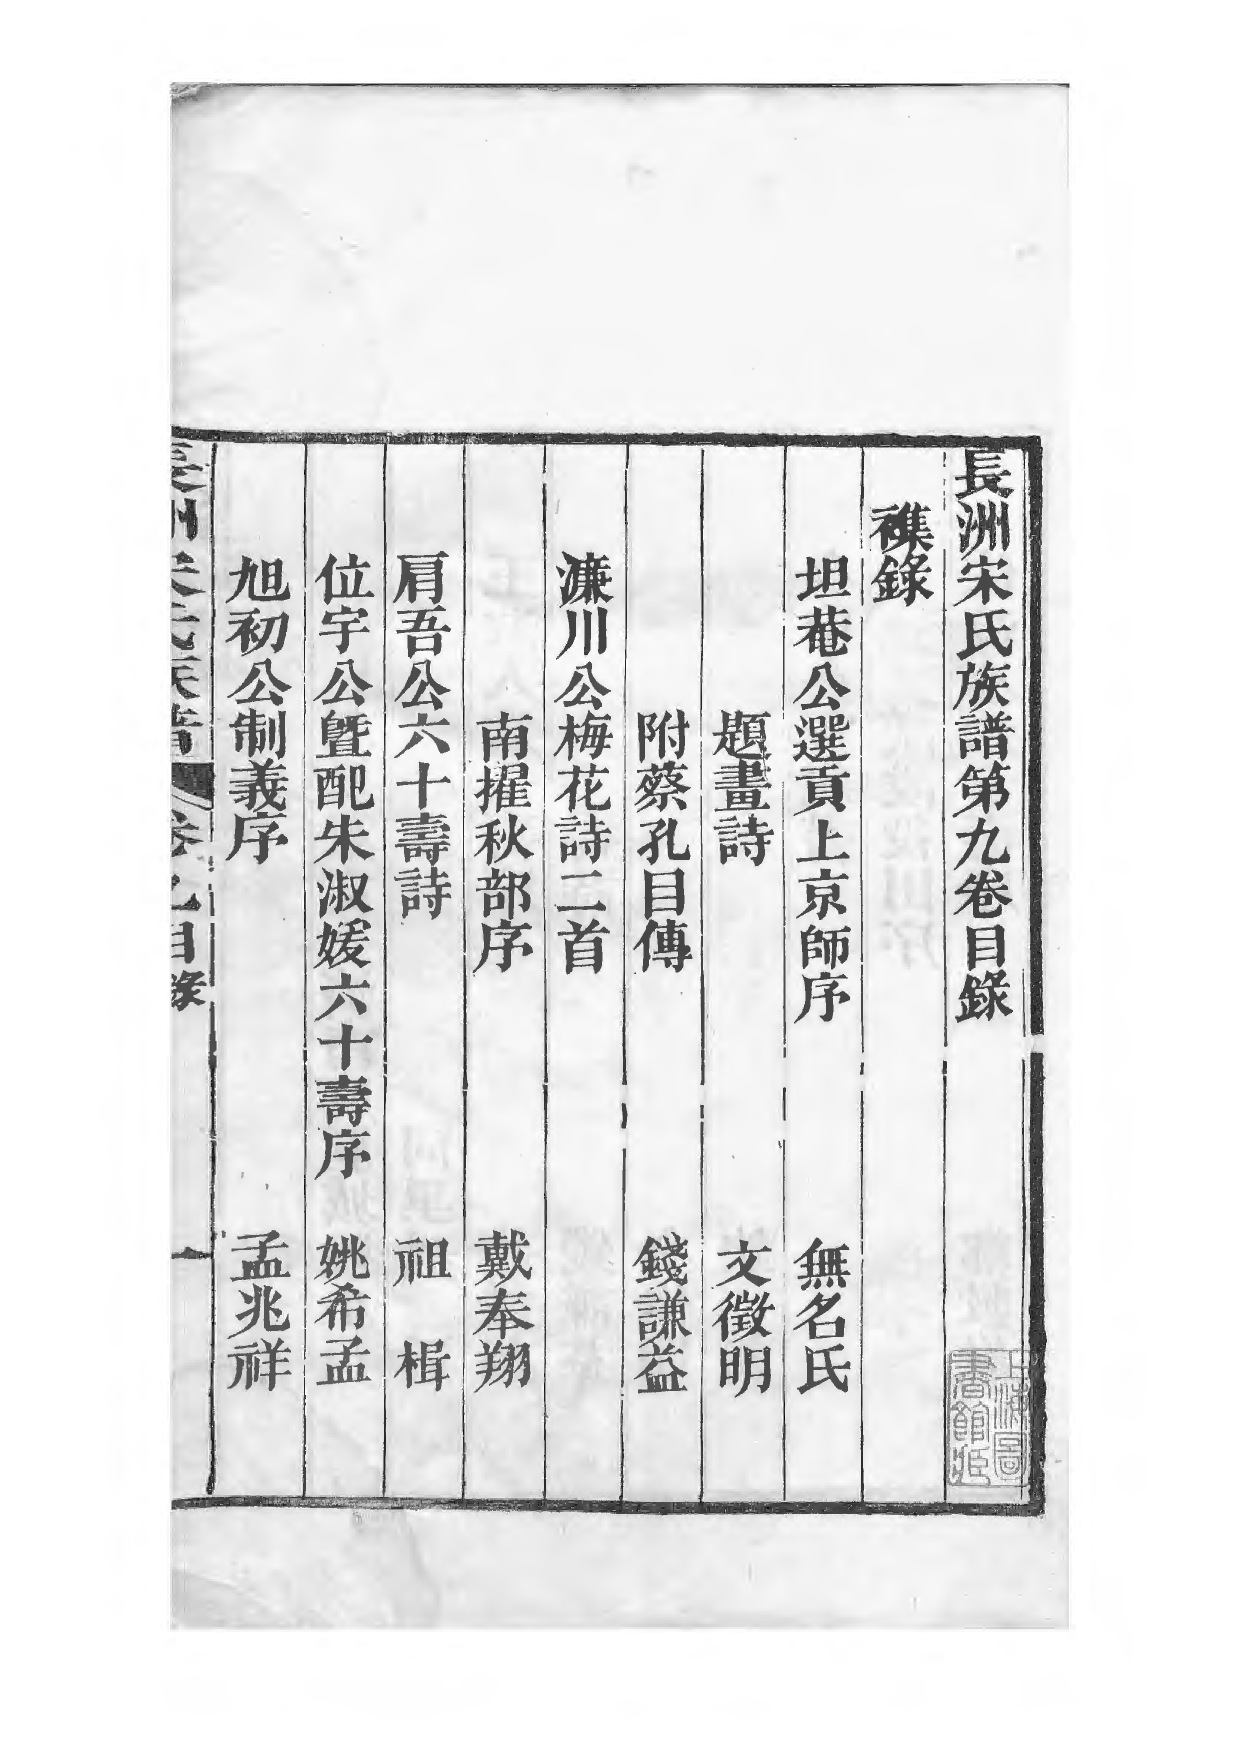 長洲宋氏族譜第九卷目錄
襍錄
坦菴公選貢上京師序 無名氏
題畫詩 文徵明
附蔡孔目傳 錢謙益
濂川公梅花詩二首
南擢秋部序 戴奉翔
肩吾公六十壽詩 祖楫
位宇公暨配朱淑媛六十壽序 姚希孟
旭初公制義序 孟兆祥
長洲宋氏族譜 卷九目錄 一
上海圖書館藏